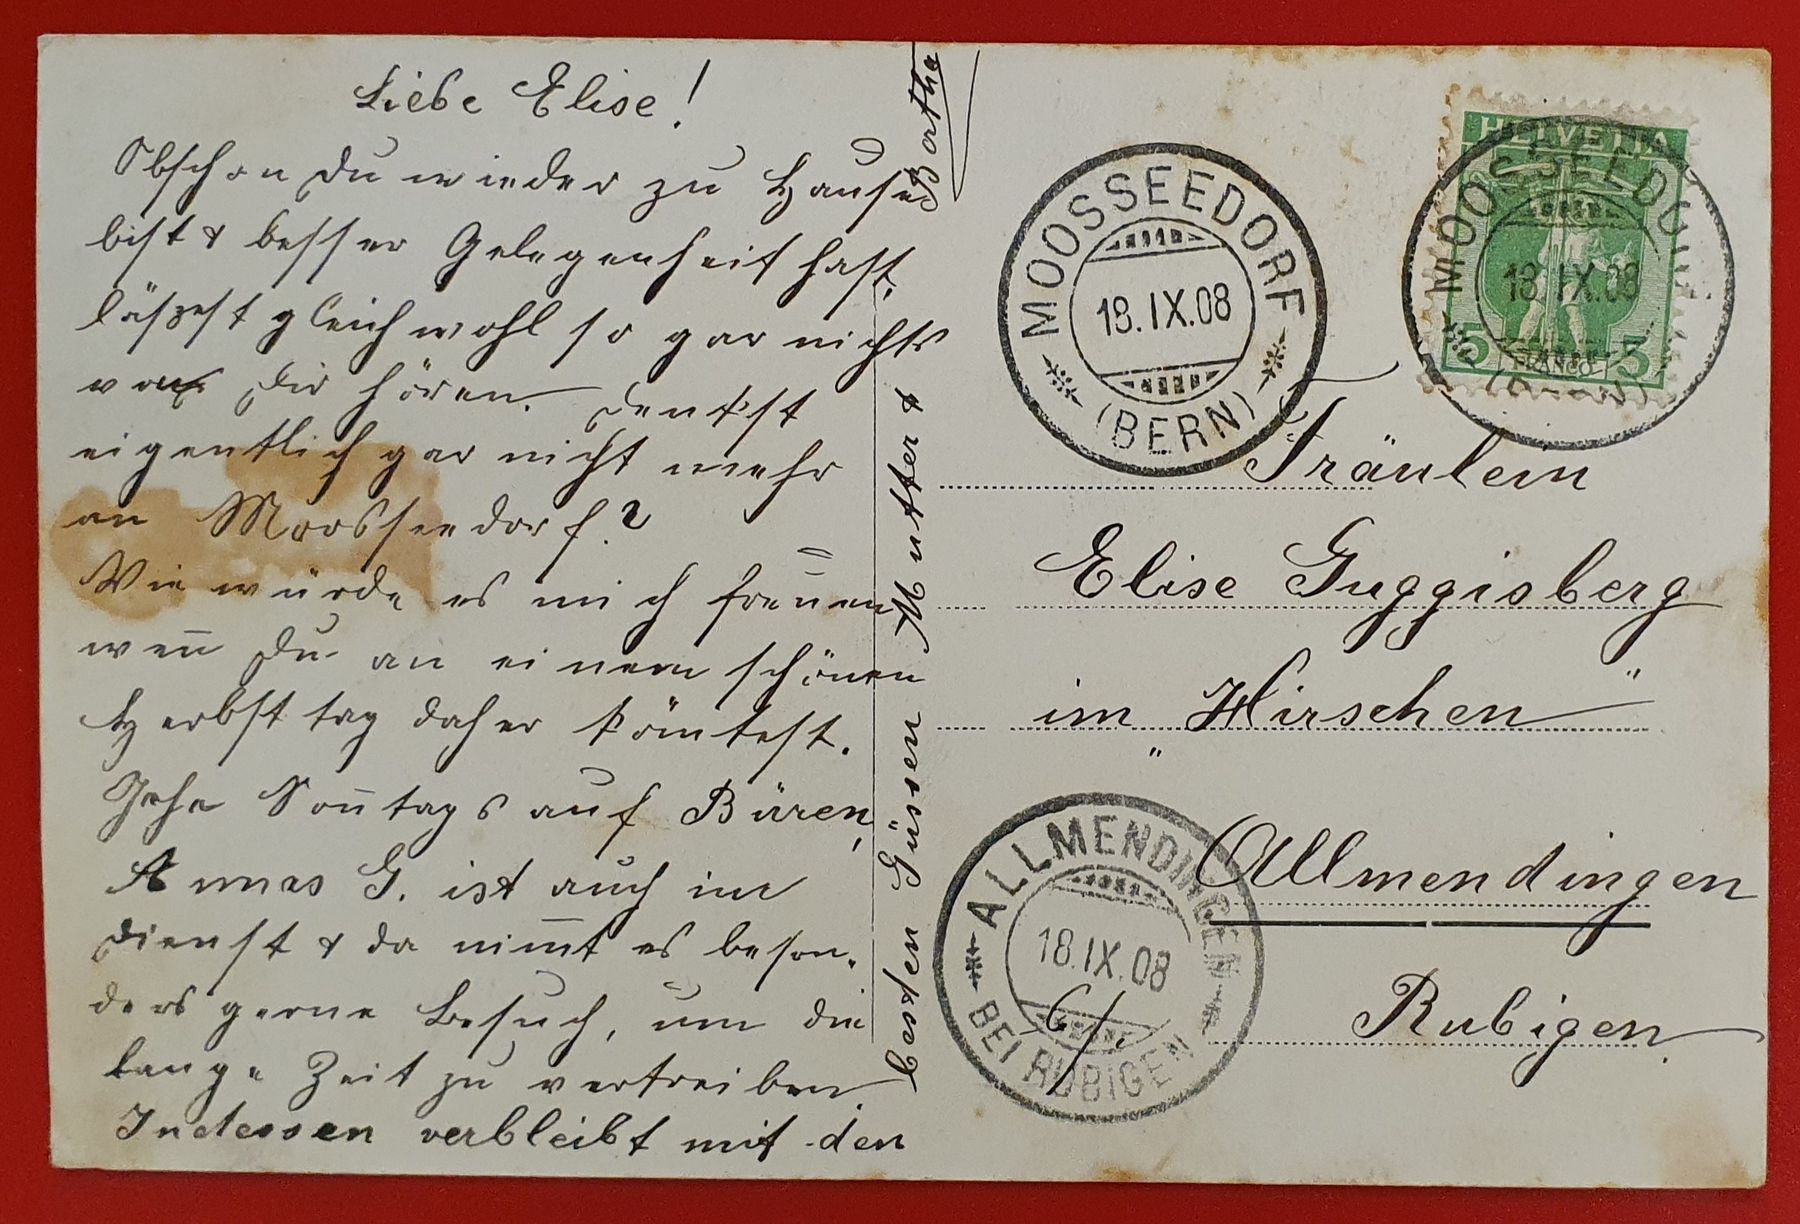 Liebe Elise!
Obschon Du wieder zu Hause
bist & besser Gelegenheit hast,
lässest gleichwohl so gar nichts
von Dir hören. Denkst
eigentlich gar nicht mehr
an Moosseedorf?
Wie würde es mich freuen
weñ Du an einem schönen
Herbsttag daher kömtest.
Gehe Soñtags auf Büren,
Annas G. ist auch im
Dienst & da nim̄t es beson-
ders gerne Besuch, um die
lange Zeit zu vertreiben.
Indessen verbleibt mit den
besten Güssen Mutter &
Bertha
MOOSSEEDORF
18.IX.08
(BERN)
HELVETIA
5 FRANCO 5
MOOSSEEDORF
18.IX.08
(BERN)
Fräulein
Elise Guggisberg
im „Hirschen"
Allmendingen
Rubigen.
ALLMENDINGEN
18.IX.08
BEI RUBIGEN